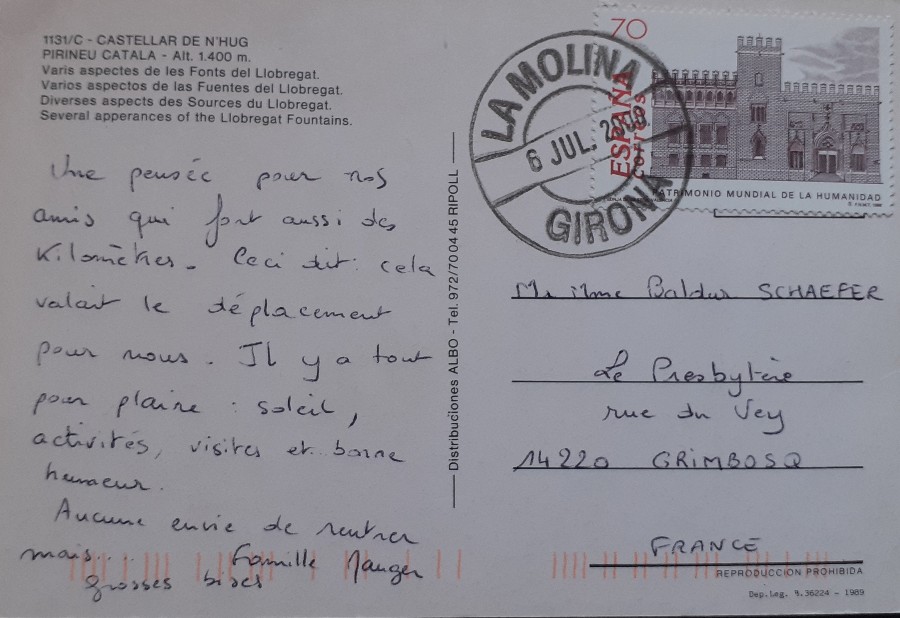 1131/C - CASTELLAR DE N'HUG
PIRINEU CATALA - Alt. 1.400 m.
Varis aspectes de les Fonts del Llobregat.
Varios aspectos de las Fuentes del Llobregat.
Diverses aspects des Sources du Llobregat.
Several apperances of the Llobregat Fountains.
Une pensée pour nos
amis qui font aussi des
Kilomètres. Ceci dit : cela
valait le déplacement
pour nous. Il y a tout
pour plaire : soleil,
activités, visites et bonne
humeur.
Aucune envie de rentrer
mais...
Famille Mauger
grosses bises
Distribuciones ALBO - Tel. 972/70 04 45 RIPOLL
LA MOLINA
6 JUL.
GIRONA
70
ESPAÑA
correos
PATRIMONIO MUNDIAL DE LA HUMANIDAD
Mr Mme Baldur SCHAEFER
Le Presbytère
rue du Vey
14220 GRIMBOSQ
FRANCE
REPRODUCCION PROHIBIDA
Dep. Leg. B. 36224 - 1989